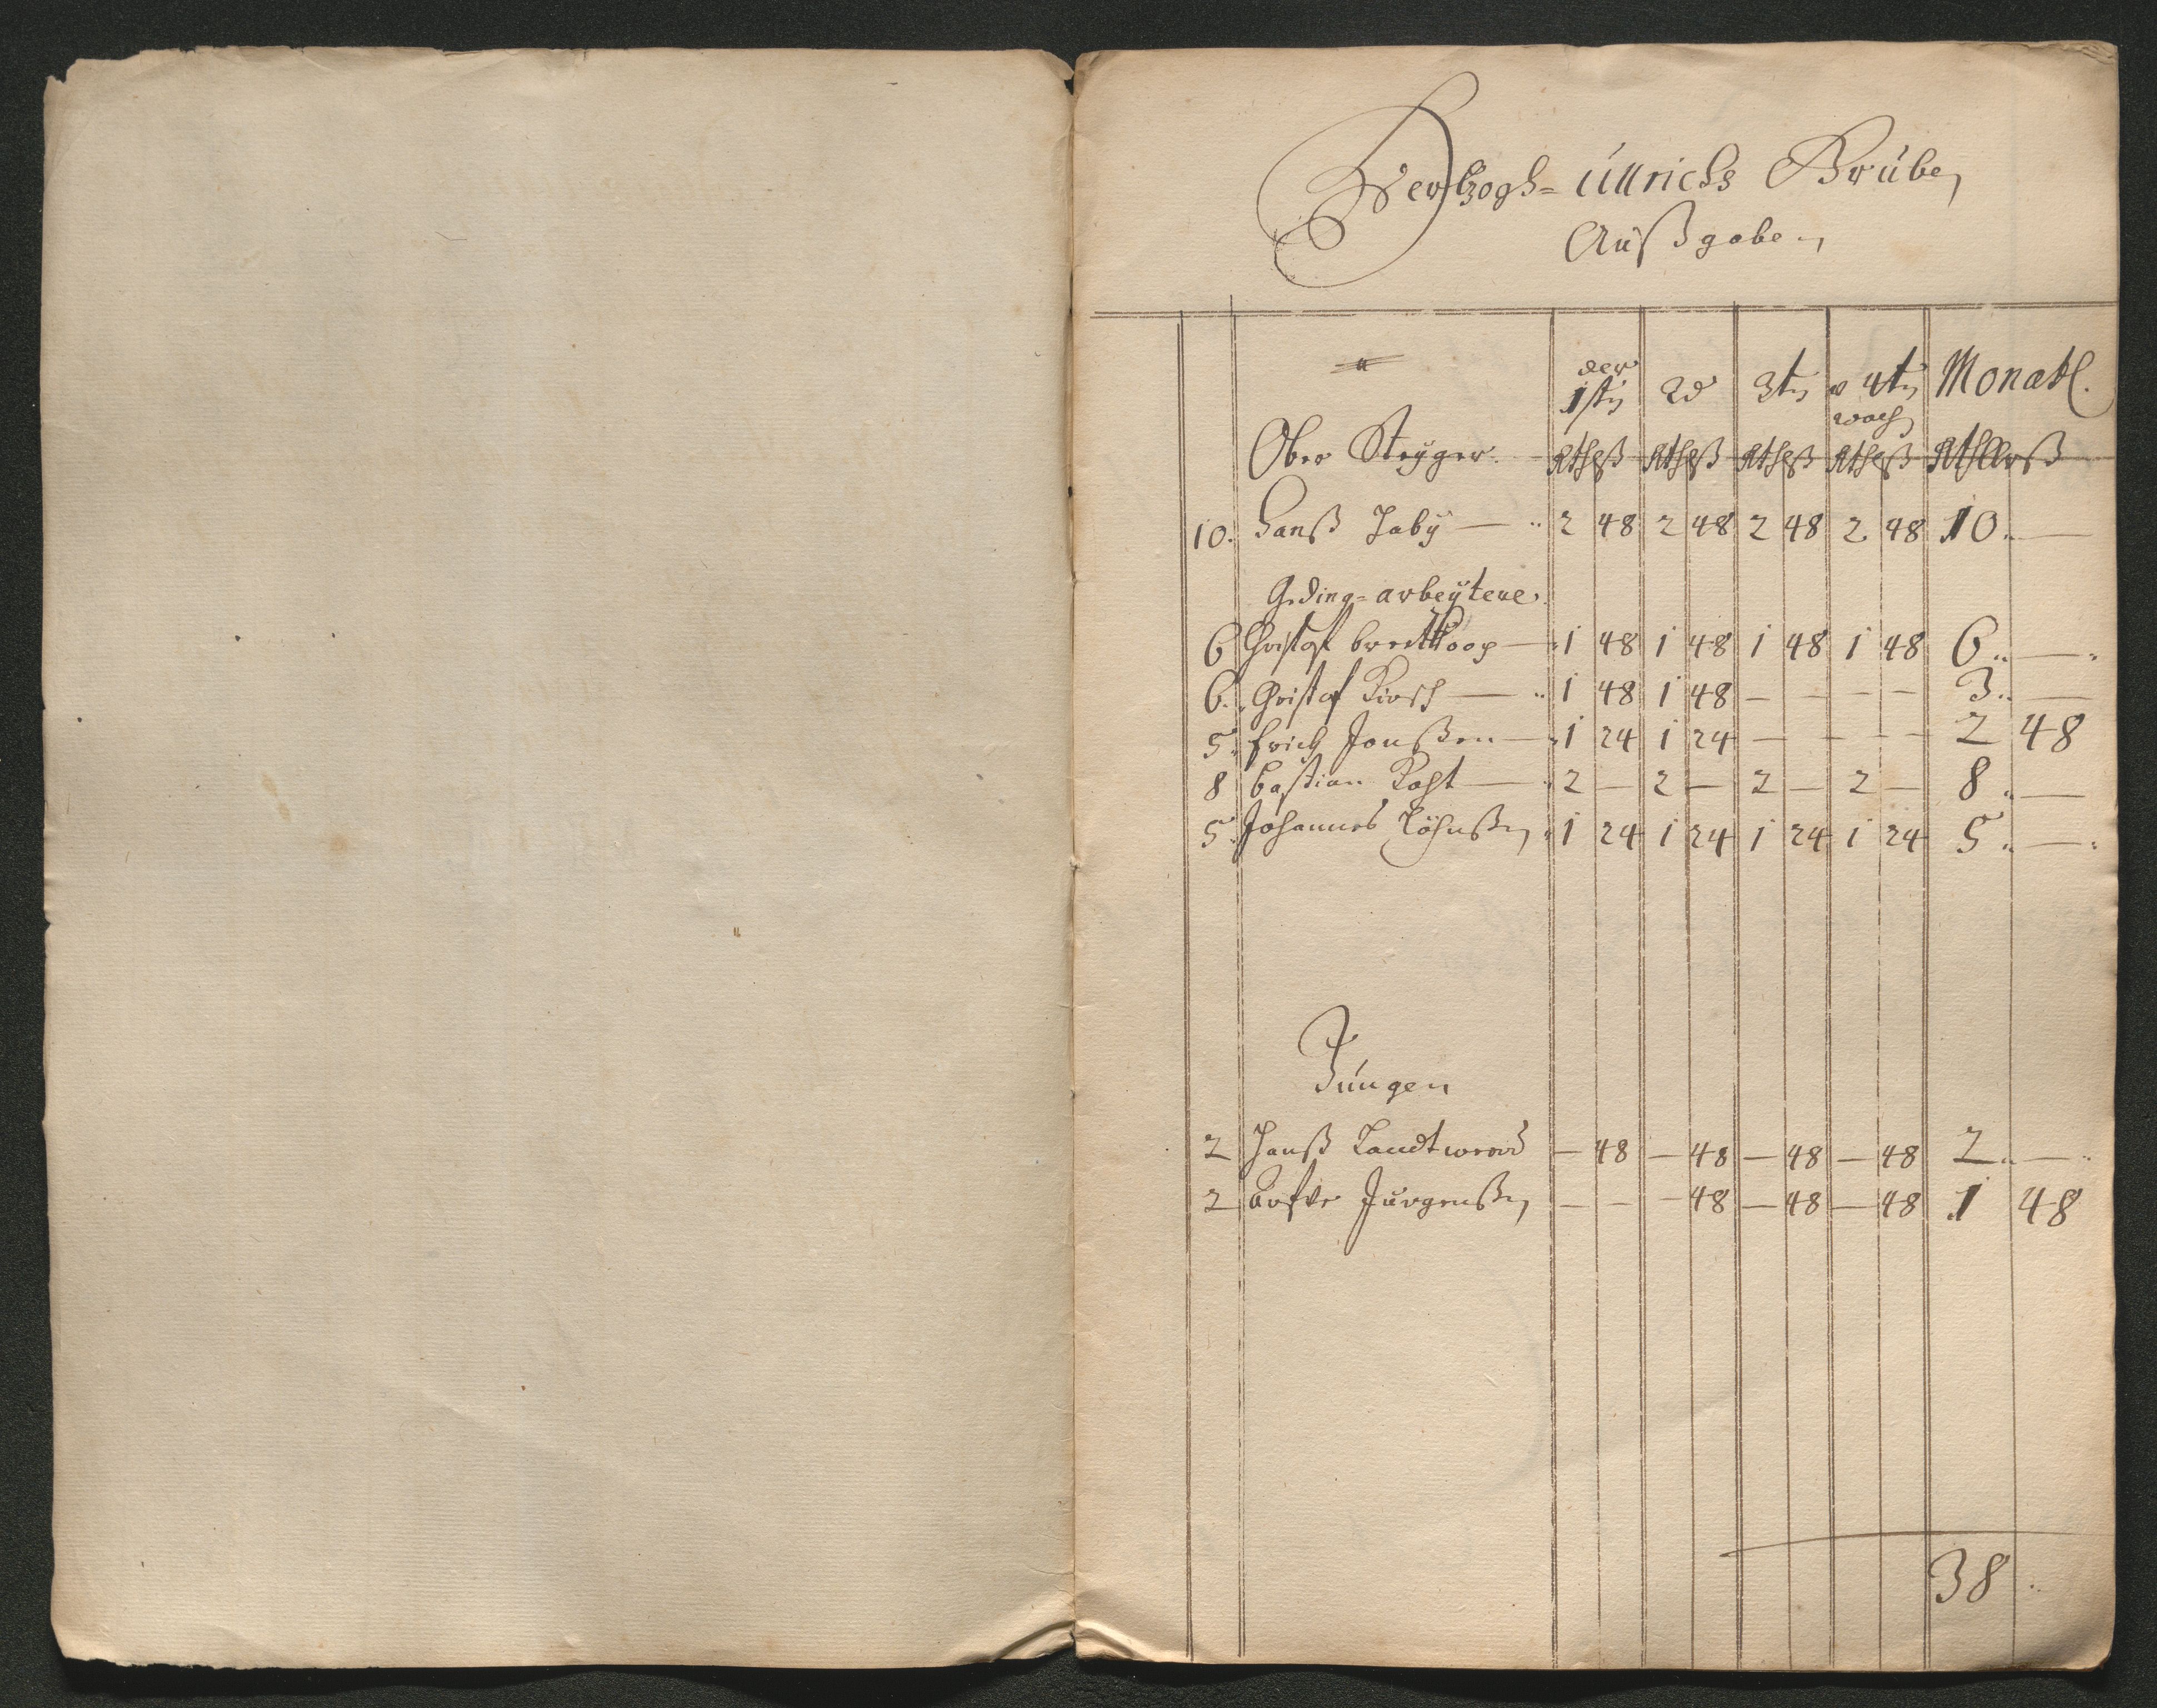 Hertzogs=Ullrichs Grube,
Außgaben
der 1stn 2d 3tn d 4tn woch Monatl.
Ober Steyger. Rth ß Rth ß Rth ß Rth ß Rthllr ß
10. Hanß Jaby — 2 48 2 48 2 48 2 48 10. —
Geding=arbeytere.
6 Christof — 1 48 1 48 1 48 1 48 6 —
6. Christof Kirsch — 1 48 1 48 — — — — 3 —
5 Erich Jonßen — 1 24 1 24 — — — — 2 48
8 Bastian Kost — 2 — 2 — 2 — 2 — 8 —
5 Johannes 1 24 1 24 1 24 1 24 5 —
Jungen
2 Hanß — 48 — 48 — 48 — 48 2 —
2 Jürgenßen — — — 48 — 48 — 48 1 48
38